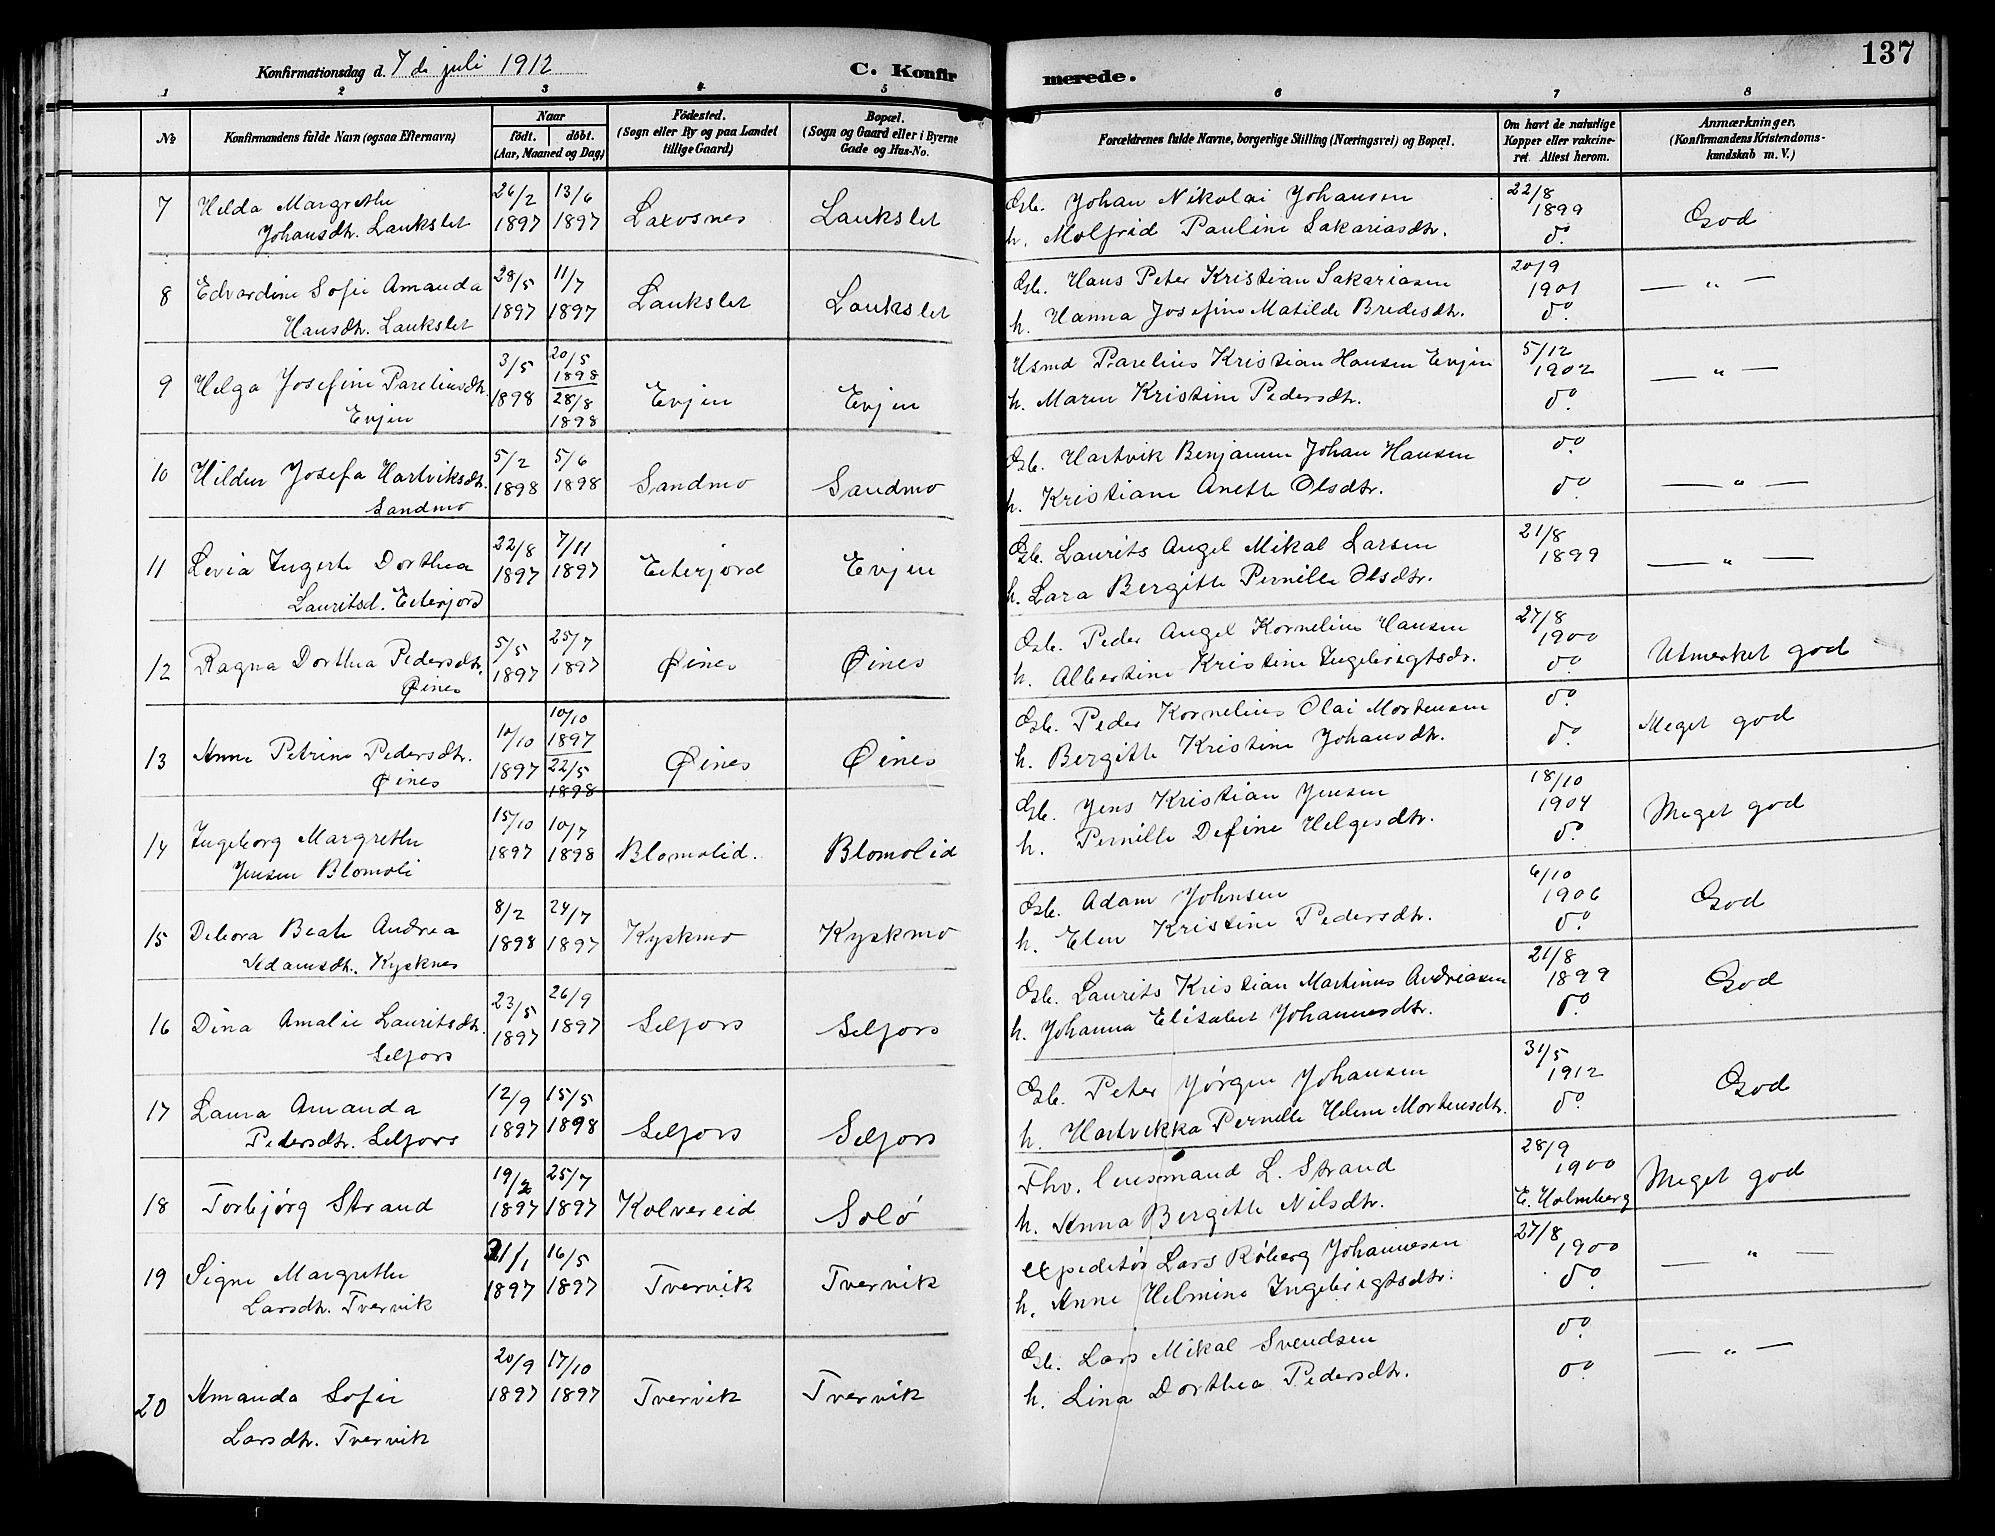 137
Konfirmationsdag d. 7 de juli 1912
C. Konfirmerede.
1 2 3 4 5 6 7 8
No
Konfirmandens fulde Navn (ogsaa Efternavn)
Naar
födt. döbt.
(Aar, Maaned og Dag)
Födested.
(Sogn eller By og paa Landet
tillige Gaard)
Bopæl.
(Sogn og Gaard eller i Byerne
Gade og Hus-No.
Forældrenes fulde Navne, borgerlige Stilling (Næringsvei) og Bopæl.
Om havt de naturlige
Kopper eller vakcine-
ret. Attest herom.
Anmærkninger,
(Konfirmandens Kristendoms-
kundskab m. V.)
7 Hilda Margrethe 26/2 13/6 Gb. Johan Nikolai Johansen 22/8
Johansdtr. Laukslet 1897 1897 Laxosnes Laukslet h. Molfrid Pauline Sakariasdtr. 1899 do. God
8 Edvardine Sofie Amanda 28/5 11/7 Gb. Hans Peter Kristian Sakariasen 20/9
Hansdtr. Laukslet 1897 1897 Laukslet Laukslet h. Hanna Josefine Matilde Bredesdtr. 1901 do. — " —
9 Helga Josefine Pareliusdtr. 3/5 20/5 1898 Husmd Parelius Kristian Hansen Evjen 5/12
Evjen 1898 28/8 1898 Evjen Evjen h. Maren Kristine Pedersdtr. 1902 do. — " —
10 Hildur Josefa Hartviksdtr. 5/2 5/6 Gb. Hartvik Benjamin Johan Hansen do.
Sandmo 1898 1898 Sandmo Sandmo h. Kristiane Anette Olsdtr. do. — " —
11 Levia Ingerte Dorthea 22/8 7/11 Gb. Laurits Angel Mikal Larsen 21/8
Lauritsd. Eiterjord 1897 1897 Eiterjord Evjen h. Lara Bergitte Pernille Olsdtr. 1899 — " —
12 Ragna Dorthea Pedersdtr. 5/5 25/7 Gb. Peder Angel Kornelius Hansen 27/8
Øines 1897 1897 Øines Øines h. Albertine Kristine Ingebrigtsdr. 1900 do. Utmerket god
13 Anne Petrine Pedersdtr. 10/10 10/10 1897 Gb. Peder Kornelius Olai Mortensen do.
Øines 1897 22/5 1898 Øines Øines h. Bergitte Kristine Johansdtr. do. Meget god
14 Ingeborg Margrethe 15/10 10/7 Gb. Jens Kristian Jensen 18/10
Jensen Blomoli 1897 1898 Blomolid. Blomolid h. Pernille Define Helgesdtr. 1904 do. Meget god
15 Debora Beate Andrea 8/2 24/7 Gb. Adam Johnsen 6/10
Adamsdtr. Kysknes 1898 1897 Kyskmo Kyskmo h. Elen Kristine Pedersdtr. 1906 do. God
16 Dina Amalie Lauritsdtr. 23/5 26/9 Gb. Laurits Kristian Martinus Andreasen 21/8
Selfors 1897 1897 Selfors Selfors h. Johanna Elisabet Johannesdtr. 1899 do. God
17 Laura Amanda 12/9 15/5 Gb. Peter Jørgen Johansen 31/5
Pedersdtr. Selfors 1897 1898 Selfors Selfors h. Hartvikka Pernille Helene Mortensdtr. 1912 do. God
18 Torbjørg Strand 19/2 25/7 Fhv. lensmand L. Strand 28/9 1900
1897 1897 Kolvereid Solø h. Anna Bergitte Nilsdtr. E. Holmberg Meget god
19 Signe Margrethe 21/1 16/5 expeditør Lars Røberg Johannesen 27/8
Larsdtr. Tvervik 1897 1897 Tvervik Tvervik h. Anne Helmine Ingebrigtsdtr. 1900 do. — " —
20 Amanda Sofie 20/9 17/10 Gb. Lars Mikal Svendsen do.
Larsdtr. Tvervik 1897 1897 Tvervik Tvervik h. Lina Dorthea Pedersdtr. do. — " —